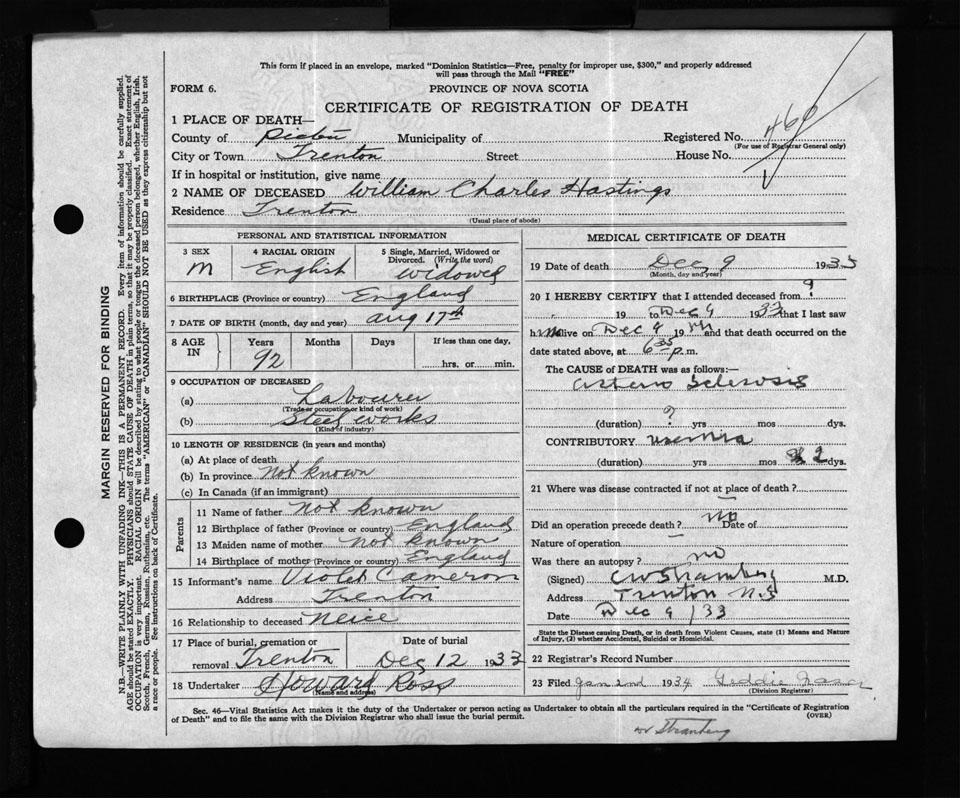 This form if placed in an envelope, marked "Dominion Statistics—Free, penalty for improper use, $300," and properly addressed
will pass through the Mail "FREE"
FORM 6.
PROVINCE OF NOVA SCOTIA
CERTIFICATE OF REGISTRATION OF DEATH
1 PLACE OF DEATH—
County of Pictou Municipality of Registered No. 460
(For use of Registrar General only)
City or Town Trenton Street House No.
If in hospital or institution, give name
2 NAME OF DECEASED William Charles Hastings
Residence Trenton
(Usual place of abode)
PERSONAL AND STATISTICAL INFORMATION
3 SEX 4 RACIAL ORIGIN 5 Single, Married, Widowed or
Divorced. (Write the word)
M English Widowed
6 BIRTHPLACE (Province or country) England
7 DATE OF BIRTH (month, day and year) Aug 17th
8 AGE IN Years Months Days If less than one day,
92 hrs. or min.
9 OCCUPATION OF DECEASED
(a) Labourer
(Trade or occupation or kind of work)
(b) Steel works
(Kind of industry)
10 LENGTH OF RESIDENCE (in years and months)
(a) At place of death
(b) In province not known
(c) In Canada (if an immigrant)
Parents
11 Name of father Not known
12 Birthplace of father (Province or country) England
13 Maiden name of mother not known
14 Birthplace of mother (Province or country) England
15 Informant's name Violet Cameron
Address Trenton
16 Relationship to deceased Neice
17 Place of burial, cremation or Date of burial
removal Trenton Dec 12 1933
18 Undertaker Howard Ross
(Name and address)
MEDICAL CERTIFICATE OF DEATH
19 Date of death Dec 9 1933
(Month, day and year)
20 I HEREBY CERTIFY that I attended deceased from ?
19 to Dec 9 1933 that I last saw
him alive on Dec 9 19 and that death occurred on
date stated above, at 6 35 p.m.
The CAUSE of DEATH was as follows:—
Arterio Sclerosis
(duration) ? yrs mos dys.
CONTRIBUTORY uremia
(duration) yrs mos 2 dys.
21 Where was disease contracted if not at place of death?
Did an operation precede death? no Date of
Nature of operation
Was there an autopsy? no
(Signed) M.D.
Address Trenton N.S
Date Dec 9/33
State the Disease causing Death, or in death from Violent Causes, state (1) Means and Nature
of Injury, (2) whether Accidental, Suicidal or Homicidal.
22 Registrar's Record Number
23 Filed Jan 2nd 1934
(Division Registrar)
Sec. 46—Vital Statistics Act makes it the duty of the Undertaker or person acting as Undertaker to obtain all the particulars required in the "Certificate of Registration
of Death" and to file the same with the Division Registrar who shall issue the burial permit.
(OVER)
MARGIN RESERVED FOR BINDING
N.B.—WRITE PLAINLY WITH UNFADING INK—THIS IS A PERMANENT RECORD. Every item of information should be carefully supplied.
AGE should be stated EXACTLY. PHYSICIANS should STATE CAUSE OF DEATH in plain terms, so that it may be properly classified. Exact statement of
OCCUPATION is very important. RACIAL ORIGIN will be described by stating to what people or tongue the deceased person belonged, whether English, Irish,
Scotch, French, German, Russian, Ruthenian, etc. The terms "AMERICAN" or "CANADIAN" SHOULD NOT BE USED as they express citizenship but not
a race or people. See instructions on back of Certificate.